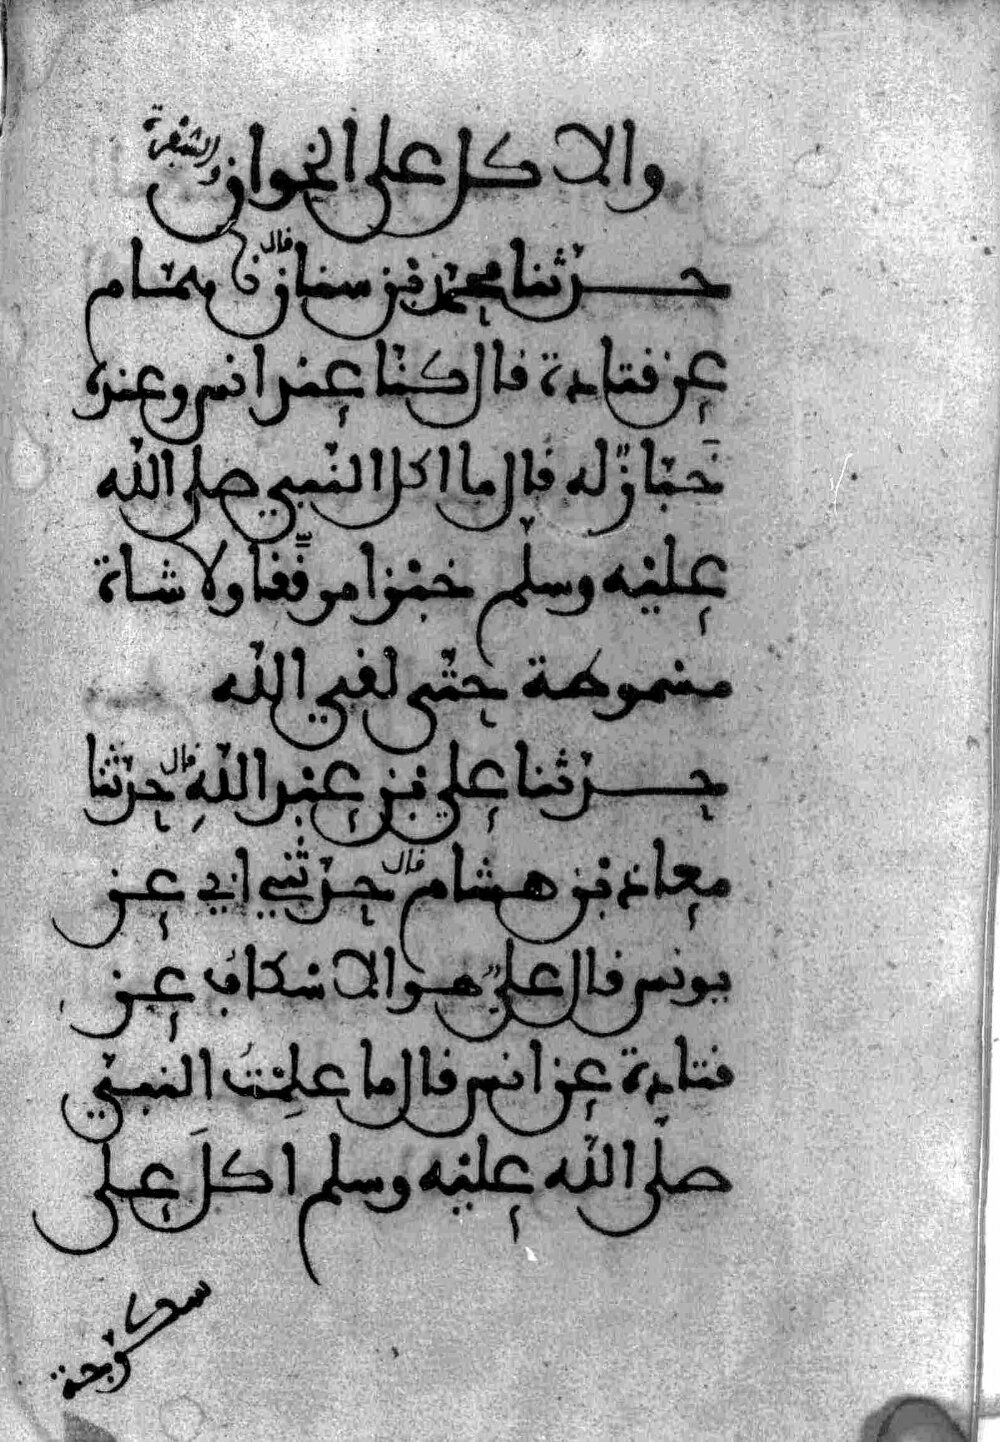 والاكل على الخوان والسفرة
حدثنا محمد بن سنان قال نا همام
عن قتادة قال كنا عند انس وعنده
خَبّازٌ له قال ما اكل النبي صلى الله
عليه وسلم خبزا مرقَّقا ولا شاة
مسموطة حتى لقي الله
حدثنا علي بن عبد اللهِ قال حدثنا
معاذ بن هشام قال حدثني ابي عن
يونس قال عليٌّ هو الاسكاف عن
قتادة عن انس قال ما علِمْتُ النبي
صلى الله عليه وسلم اكلَ على
سكرجة